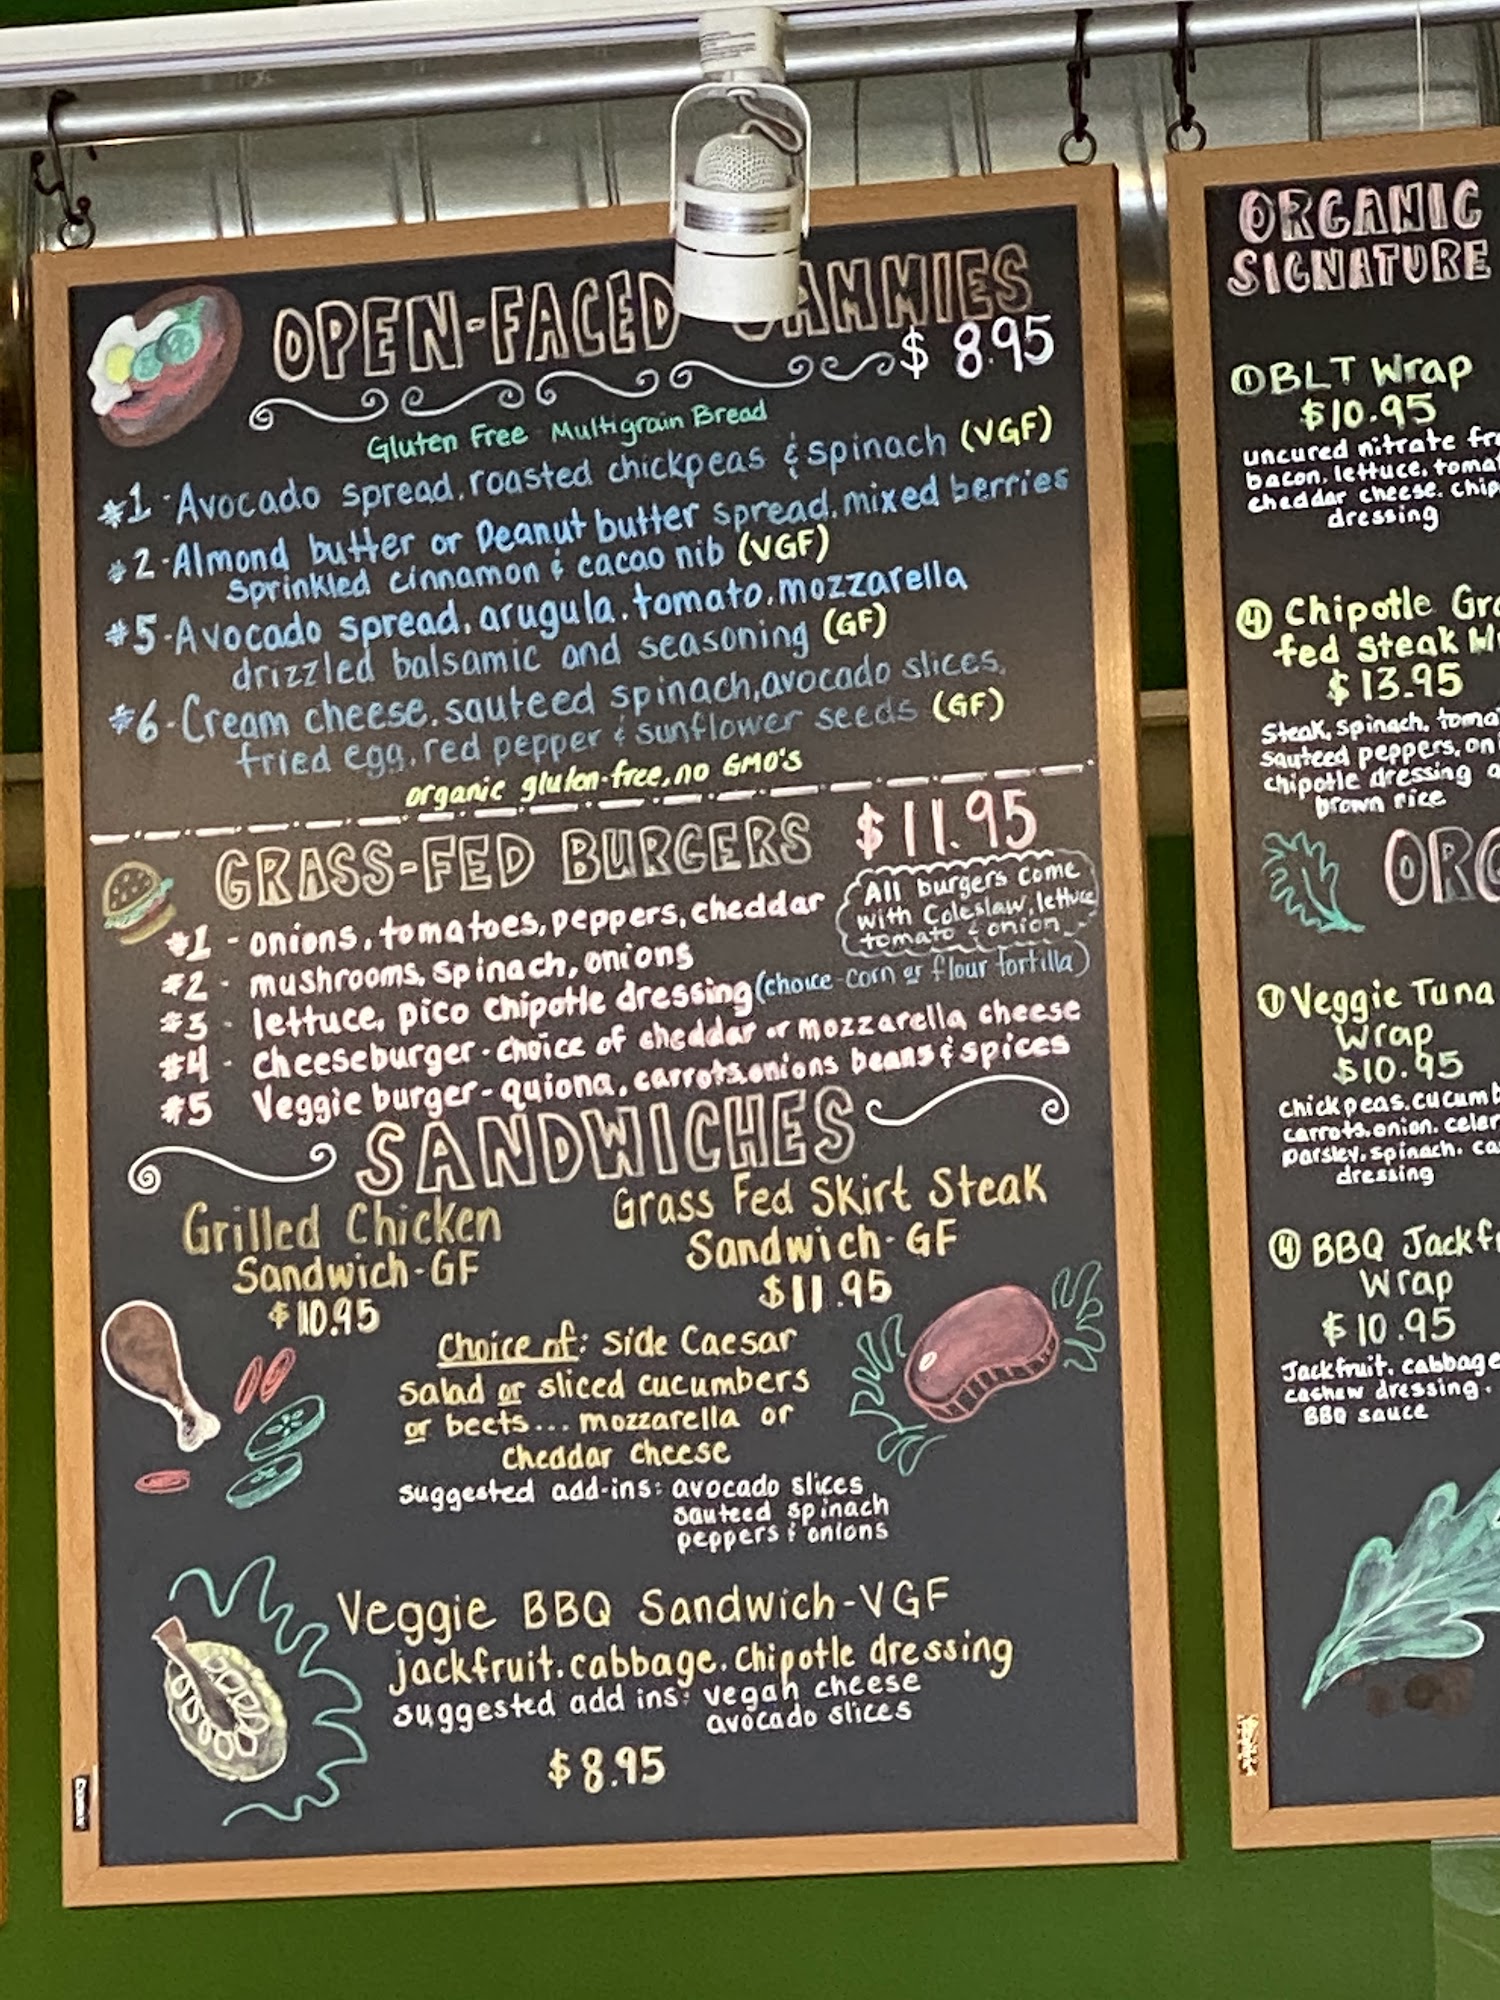 OPEN-FACED
$ 8.95
Gluten Free Multigrain Bread
#1 - Avocado spread, roasted chickpeas & spinach (VGF)
#2 - Almond butter or Peanut butter spread, mixed berries
sprinkled cinnamon & cacao nib (VGF)
#5 - Avocado spread, arugula, tomato, mozzarella
drizzled balsamic and seasoning (GF)
#6 - Cream cheese, sauteed spinach, avocado slices,
fried egg, red pepper & sunflower seeds (GF)
organic gluten-free, no GMO's
GRASS-FED BURGERS $11.95
All burgers come
with Coleslaw, lettuce
tomato & onion
#1 - onions, tomatoes, peppers, cheddar
#2 - mushrooms, spinach, onions
#3 - lettuce, pico chipotle dressing (choice-corn or flour tortilla)
#4 - cheeseburger - choice of cheddar or mozzarella cheese
#5 Veggie burger - quiona, carrots, onions beans & spices
SANDWICHES
Grilled Chicken
Sandwich - GF
$10.95
Grass Fed Skirt Steak
Sandwich - GF
$11.95
Choice of: side Caesar
salad or sliced cucumbers
or beets... mozzarella or
cheddar cheese
suggested add-ins: avocado slices
sauteed spinach
peppers & onions
Veggie BBQ Sandwich - VGF
jackfruit, cabbage, chipotle dressing
suggested add ins: vegan cheese
avocado slices
$8.95
ORGANIC
SIGNATURE
① BLT Wrap
$10.95
uncured nitrate
bacon, lettuce,
cheddar cheese,
dressing
④ Chipotle
fed Steak
$13.95
Steak, spinach,
sauteed peppers,
chipotle dressing
brown rice
① Veggie Tuna
Wrap
$10.95
chickpeas,
carrots, onion,
parsley, spinach,
dressing
④ BBQ
Wrap
$10.95
Jackfruit, cabbage
cashew dressing,
BBQ sauce